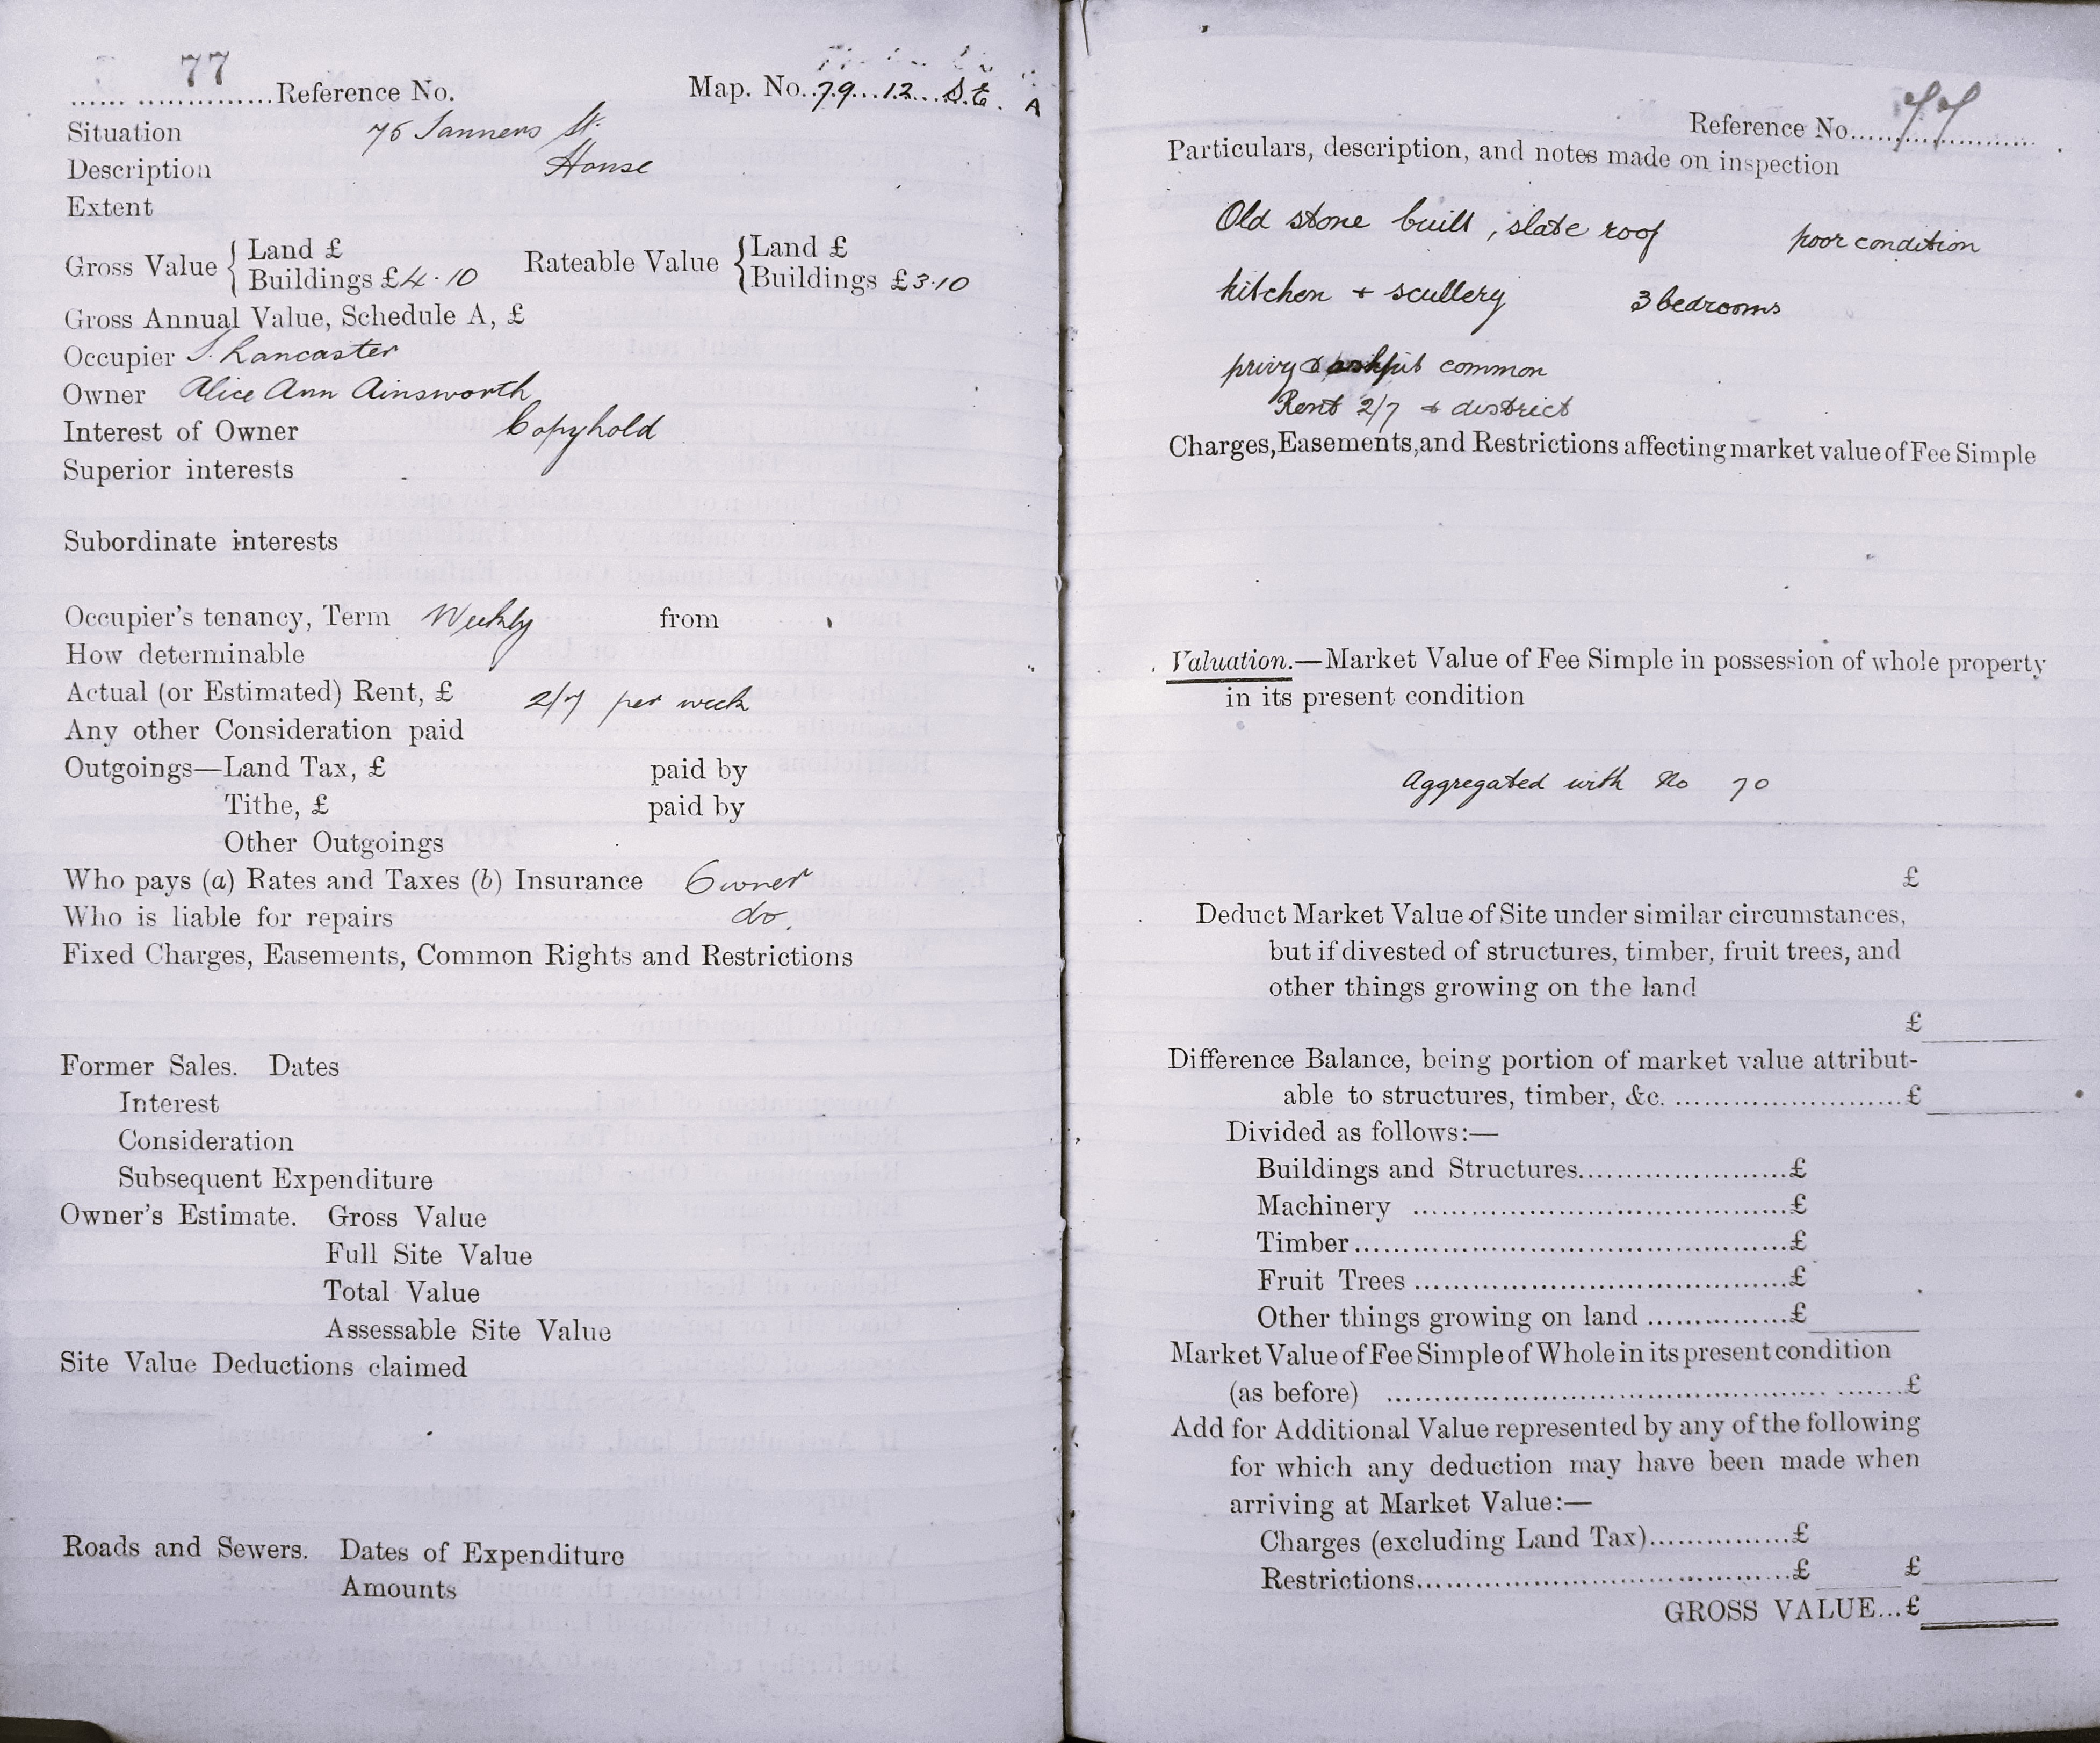 77
...... ..............Reference No. Map. No. 79 12 S.E. A
Situation 76 Tanners St.
Description House
Extent
Gross Value { Land £ Rateable Value { Land £
Buildings £4.10 Buildings £3.10
Gross Annual Value, Schedule A, £
Occupier Lancaster
Owner Alice Ann Ainsworth
Interest of Owner Copyhold
Superior interests
Subordinate interests
Occupier's tenancy, Term Weekly from
How determinable
Actual (or Estimated) Rent, £ 2/7 per week
Any other Consideration paid
Outgoings—Land Tax, £ paid by
Tithe, £ paid by
Other Outgoings
Who pays (a) Rates and Taxes (b) Insurance Owner
Who is liable for repairs do.
Fixed Charges, Easements, Common Rights and Restrictions
Former Sales. Dates
Interest
Consideration
Subsequent Expenditure
Owner's Estimate. Gross Value
Full Site Value
Total Value
Assessable Site Value
Site Value Deductions claimed
Roads and Sewers. Dates of Expenditure
Amounts
Reference No. 77
Particulars, description, and notes made on inspection
Old stone built, slate roof poor condition
kitchen + scullery 3 bedrooms
privy & ashpit common
Rent 2/7 + district
Charges, Easements, and Restrictions affecting market value of Fee Simple
Valuation.—Market Value of Fee Simple in possession of whole property
in its present condition
Aggregated with No 70
£
Deduct Market Value of Site under similar circumstances,
but if divested of structures, timber, fruit trees, and
other things growing on the land
£
Difference Balance, being portion of market value attribut-
able to structures, timber, &c. ............................£
Divided as follows:—
Buildings and Structures......................£
Machinery .......................................£
Timber.............................................£
Fruit Trees .......................................£
Other things growing on land ...............£
Market Value of Fee Simple of Whole in its present condition
(as before) .......................................................£
Add for Additional Value represented by any of the following
for which any deduction may have been made when
arriving at Market Value:—
Charges (excluding Land Tax)...............£
Restrictions.......................................£ £
GROSS VALUE...£